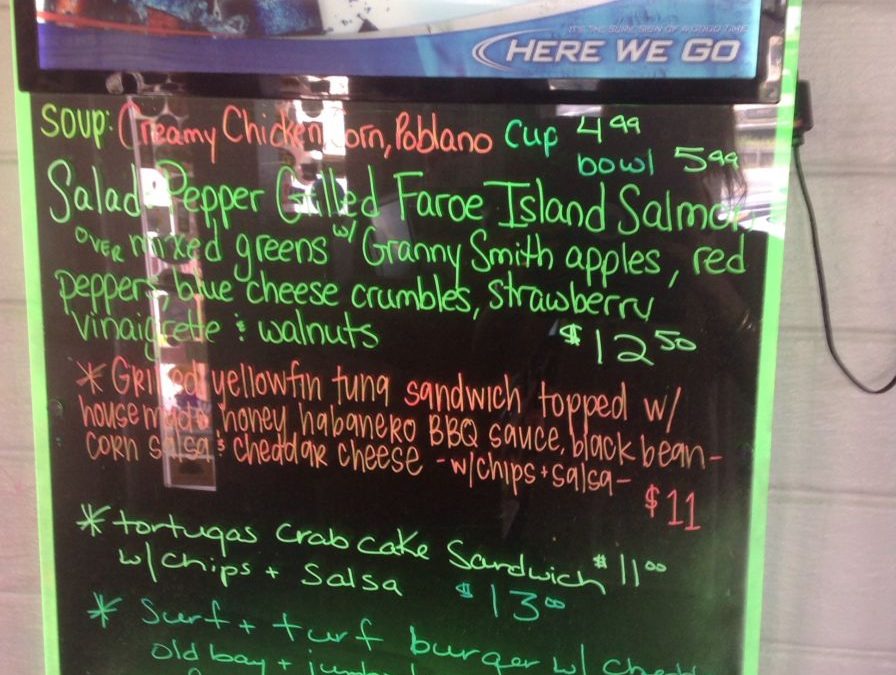 IT'S THE SURE SIGN OF A GOOD TIME
HERE WE GO
SOUP: Creamy Chicken, Corn, Poblano Cup 4.99
bowl 5.99
Salad: Pepper Grilled Faroe Island Salmon
OVER mixed greens w/ Granny Smith apples, red
peppers, blue cheese crumbles, strawberry
vinaigrette & walnuts $12.50
* Grilled yellowfin tuna sandwich topped w/
housemade honey habanero BBQ sauce, black bean-
corn salsa & cheddar cheese - w/chips + salsa -
$11
* tortugas crab cake Sandwich $11.00
w/ chips + Salsa $13.00
* Surf + turf burger w/
old bay +